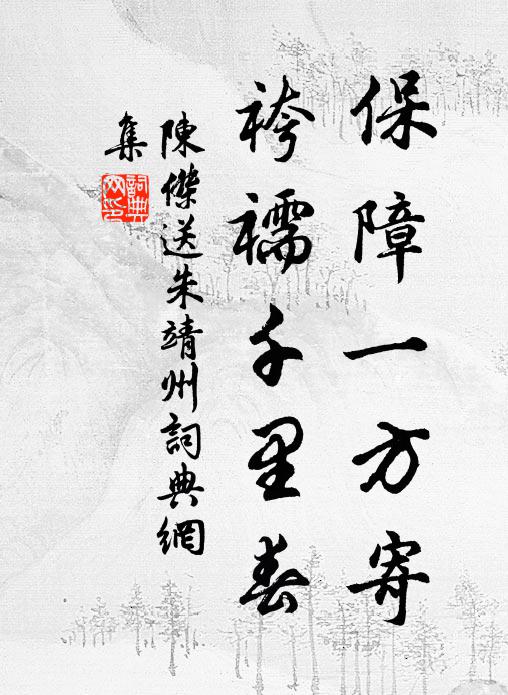 保障一方寄
袴襦千里春
陳傑送朱靖州詞典網
集
詞典
网印